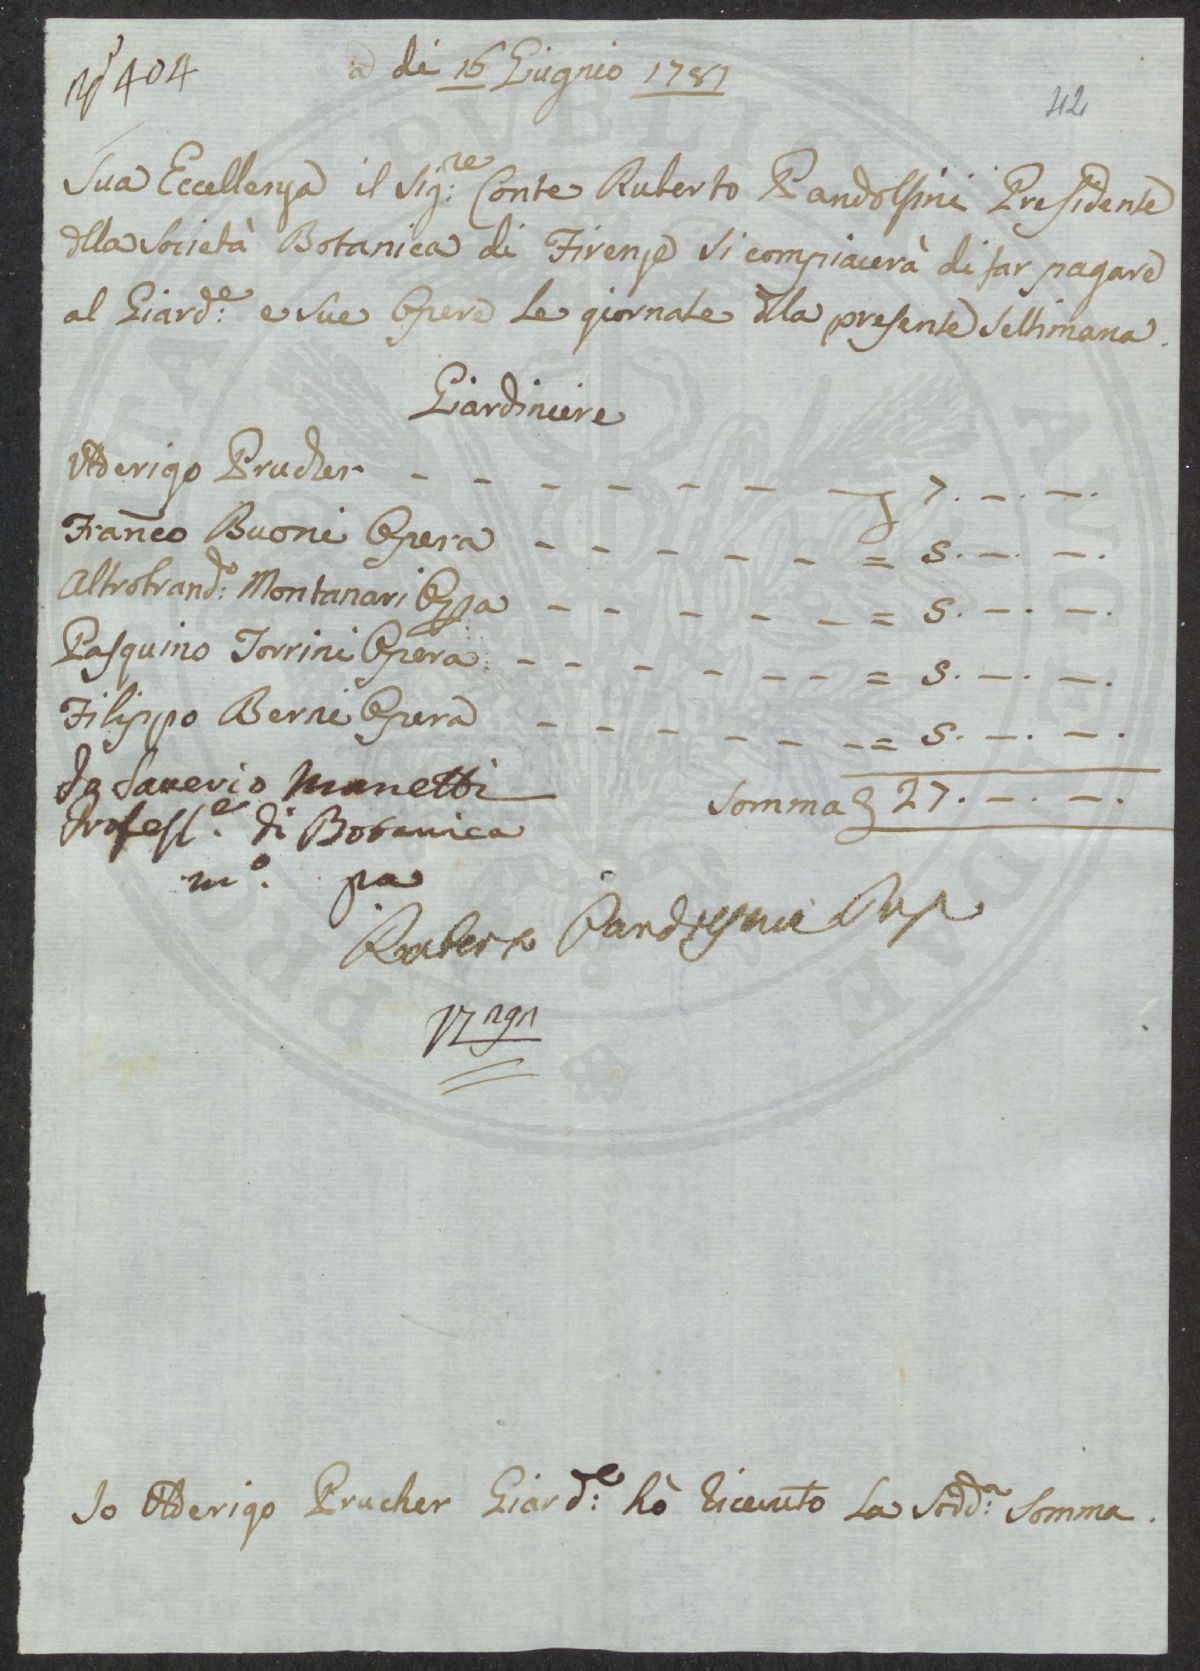 N° 404
a di 16 Giugnio 1781
42
Sua Eccellenza il Sig:re Conte Ruberto Pandolfini Presidente
dlla Società Botanica di Firenze si compiacerà di far pagare
al Giard:e e sue Opere le giornate dlla presente Settimana.
Giardiniere
Aderigo Prucher - - - - - - - 7. —. —.
Franco Buoni Opera - - - - - - = 5. —. —.
Altrobrand:o Montanari Oppa - - - - - - = 5. —. —.
Pasquino Torrini Opera - - - - - - - = 5. —. —.
Filippo Berni Opera - - - - - - = 5. —. —.
Somma 27. —. —.
Saverio Manetti
Profess:e di Botanica
m:o pa
Ruberto Pandolfini
Io Aderigo Prucher Giard:e hò ricevuto la Sodd:a Somma.